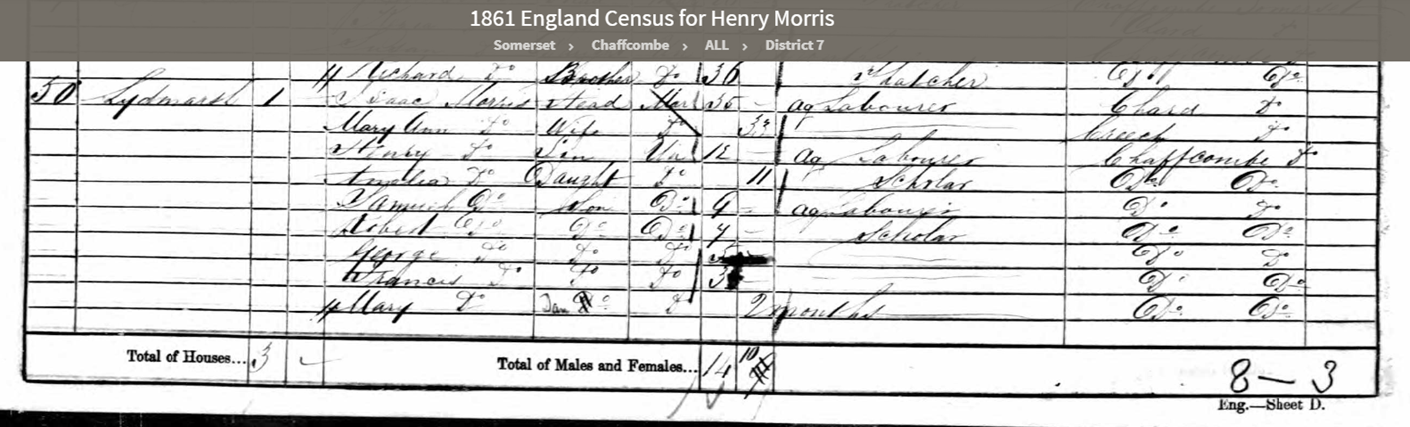 1861 England Census for Henry Morris
Somerset › Chaffcombe › ALL › District 7
Richard Do Brother Do 36 Thatcher Do Do
50 Lydmarsh 1 Isaac Morris Head Mar 36 Ag Labourer Chard Do
Mary Ann Do Wife Do 33 Creech Do
Henry Do Son Un 12 Ag Labourer Chaffcombe Do
Amelia Do Daught Do 11 Scholar Do Do
Samuel Do Son Do 9 Ag Labourer Do Do
Robert Do Do Do 7 Scholar Do Do
George Do Do Do Do Do
Francis Do Do Do 3 Do Do
Mary Do Do 2 months Do Do
Total of Houses... 3 Total of Males and Females... 14 10
8 — 3
Eng.—Sheet D.